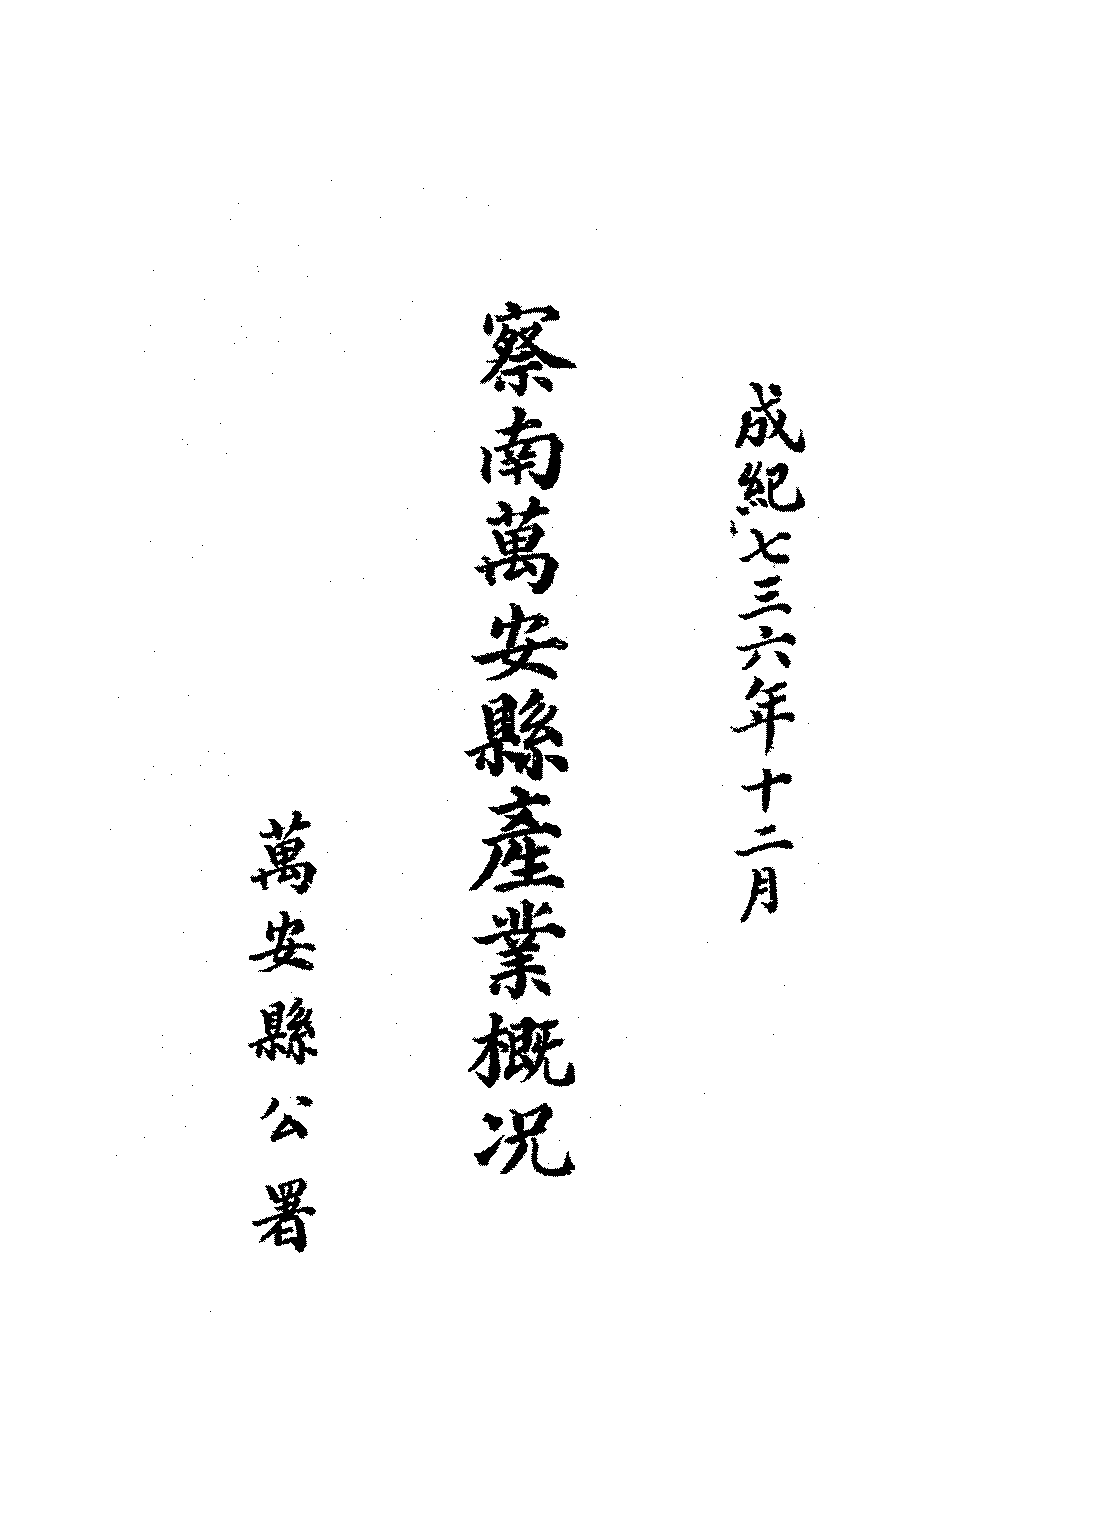 成紀七三六年十二月
察南萬安縣產業概况
萬安縣公署